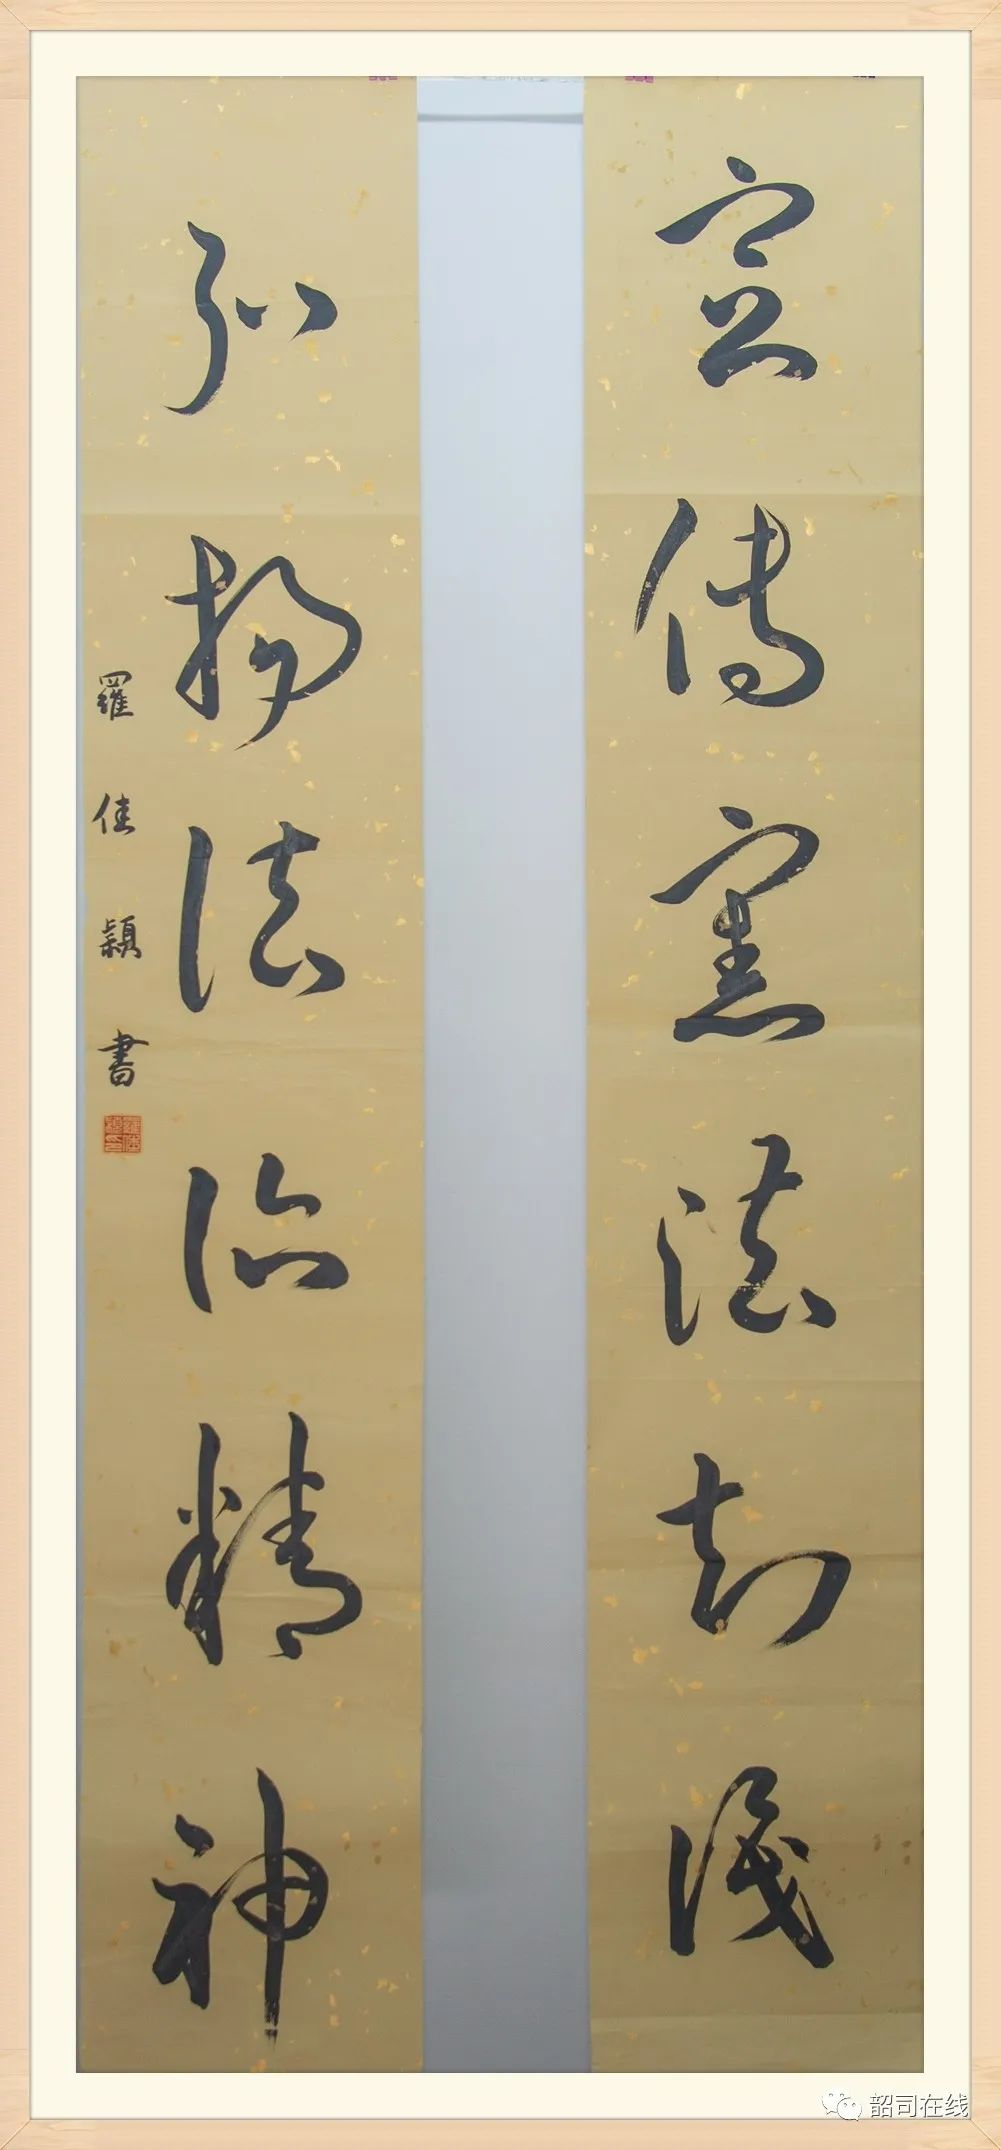 宣傳憲法知識
弘揚法治精神
羅佳穎書
韶司在线